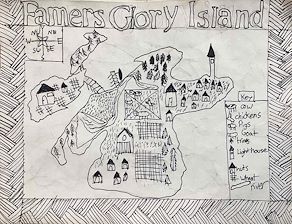 Famers Glory Island
N
NW NE
W E
SW SE
S
Key
cow
chickens
Pigs
Goat
trees
Lighthouse
huts
wheat